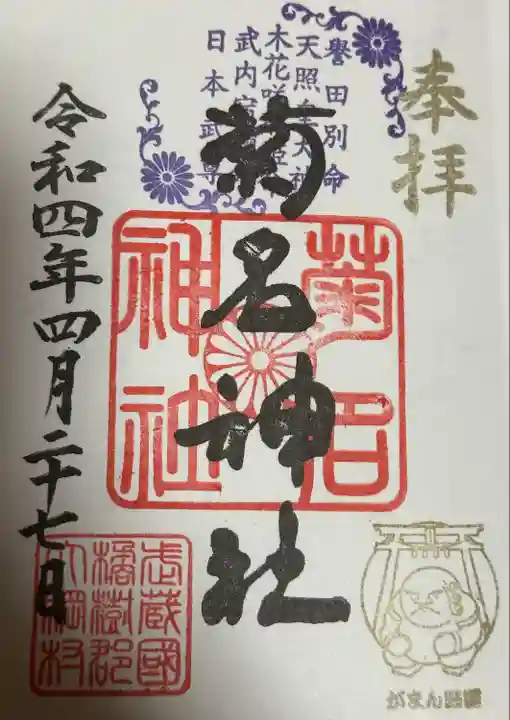 奉拝
譽田別命
天照皇大神
木花咲
武内宿
日本武尊
菊名神社
菊名
神社
令和四年四月二十七日
武蔵國
橘樹郡
大綱村
がまん様